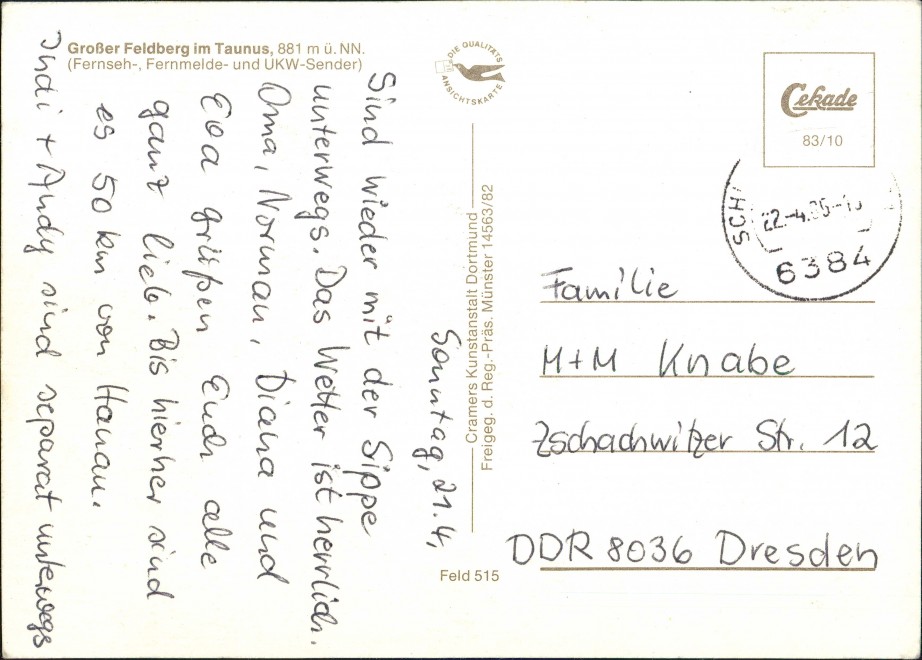 Großer Feldberg im Taunus, 881 m ü. NN.
(Fernseh-, Fernmelde- und UKW-Sender)
DIE QUALITÄTS
ANSICHTSKARTE
Cekade
83/10
SCH
22.-4.85-
6384
Sonntag, 21.4,
Sind wieder mit der Sippe
unterwegs. Das Wetter ist herrlich.
Oma, Norman, Diana und
Eva grüßen Euch alle
ganz lieb. Bis hierher sind
es 50 km von Hanau.
Indi + Andy sind separat unterwegs
Cramers Kunstanstalt Dortmund
Freigeg. d. Reg.-Präs. Münster 14563/82
Feld 515
Familie
M+M Knabe
Zschachwitzer Str. 12
DDR 8036 Dresden